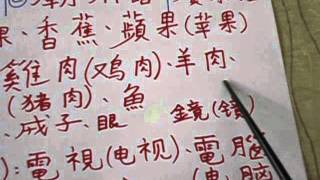 果、香蕉、蘋果(苹果)
雞肉(鸡肉)、羊肉、
(猪肉)、魚
、戒子、眼鏡(镜)
):電視(电视)、電腦
(电脑